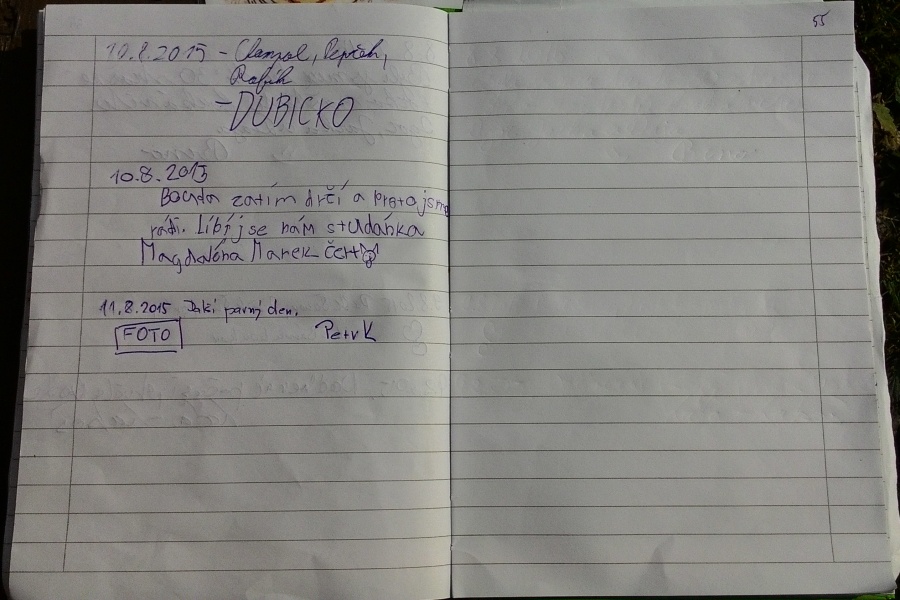 10.8.2015 –
– DUBICKO
10.8.2015
Bouda zatím drží a proto jsme
rádi. Líbí se nám studánka
Magdaléna Marek čert
11.8.2015 Další parný den.
FOTO PetrK
55